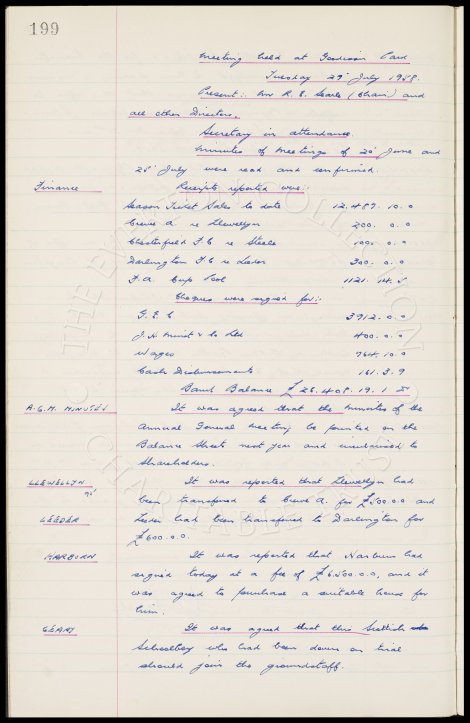 199
Meeting held at Goodison Park
Tuesday 29' July 1958.
Present: Mr R. E. Searle (Chair) and
all other Directors.
Secretary in attendance.
Minutes of Meetings of 20' June and
25' July were read and confirmed.
Finance
Receipts reported were:
Season Ticket Sales to date 12.487.10.0
Crewe A re Llewellyn 200. 0.0
Chesterfield F.C re Steele 100. 0.0
Darlington F.C re Leeder 300. 0.0
F.A. Cup Pool 1121. 14. 5
Cheques were signed for:
G.E.C 3912. 0. 0
J.H. & Co Ltd 400. 0. 0
Wages 764. 10. 0
Cash Disbursements 161. 3. 9
Bank Balance £26.408.19.1
A.G.M. MINUTES
It was agreed that the Minutes of the
Annual General Meeting be printed on the
Balance Sheet next year and circularised to
Shareholders.
LLEWELLYN
It was reported that Llewellyn had
been transferred to Crewe A. for £500.0.0 and
LEEDER
Leeder had been transferred to Darlington for
£600.0.0.
HARBURN
It was reported that Harburn had
signed today at a fee of £6500.0.0, and it
was agreed to purchase a suitable house for
him.
GEARY
It was agreed that this Scottish
Schoolboy who had been down on trial
should join the groundstaff.
THE EVERTON COLLECTION
CHARITABLE TRUST